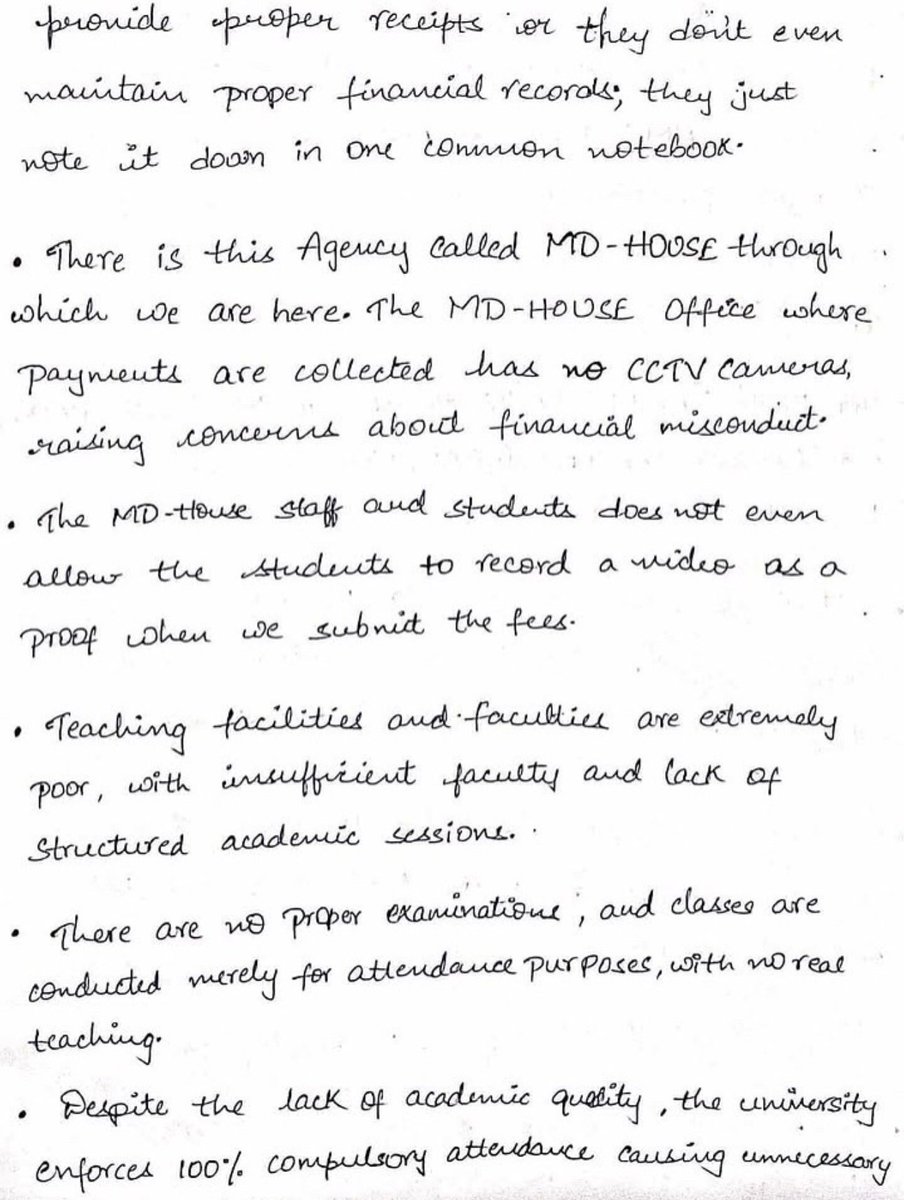 provide proper receipts or they don't even
maintain proper financial records; they just
note it down in one common notebook.
• There is this Agency called MD-HOUSE through
which we are here. The MD-HOUSE Office where
payments are collected has no CCTV cameras,
raising concerns about financial misconduct.
• The MD-House staff and students does not even
allow the students to record a video as a
proof when we submit the fees.
• Teaching facilities and faculties are extremely
poor, with insufficient faculty and lack of
structured academic sessions.
• There are no proper examinations, and classes are
conducted merely for attendance purposes, with no real
teaching.
• Despite the lack of academic quality, the university
enforces 100% compulsory attendance causing unnecessary